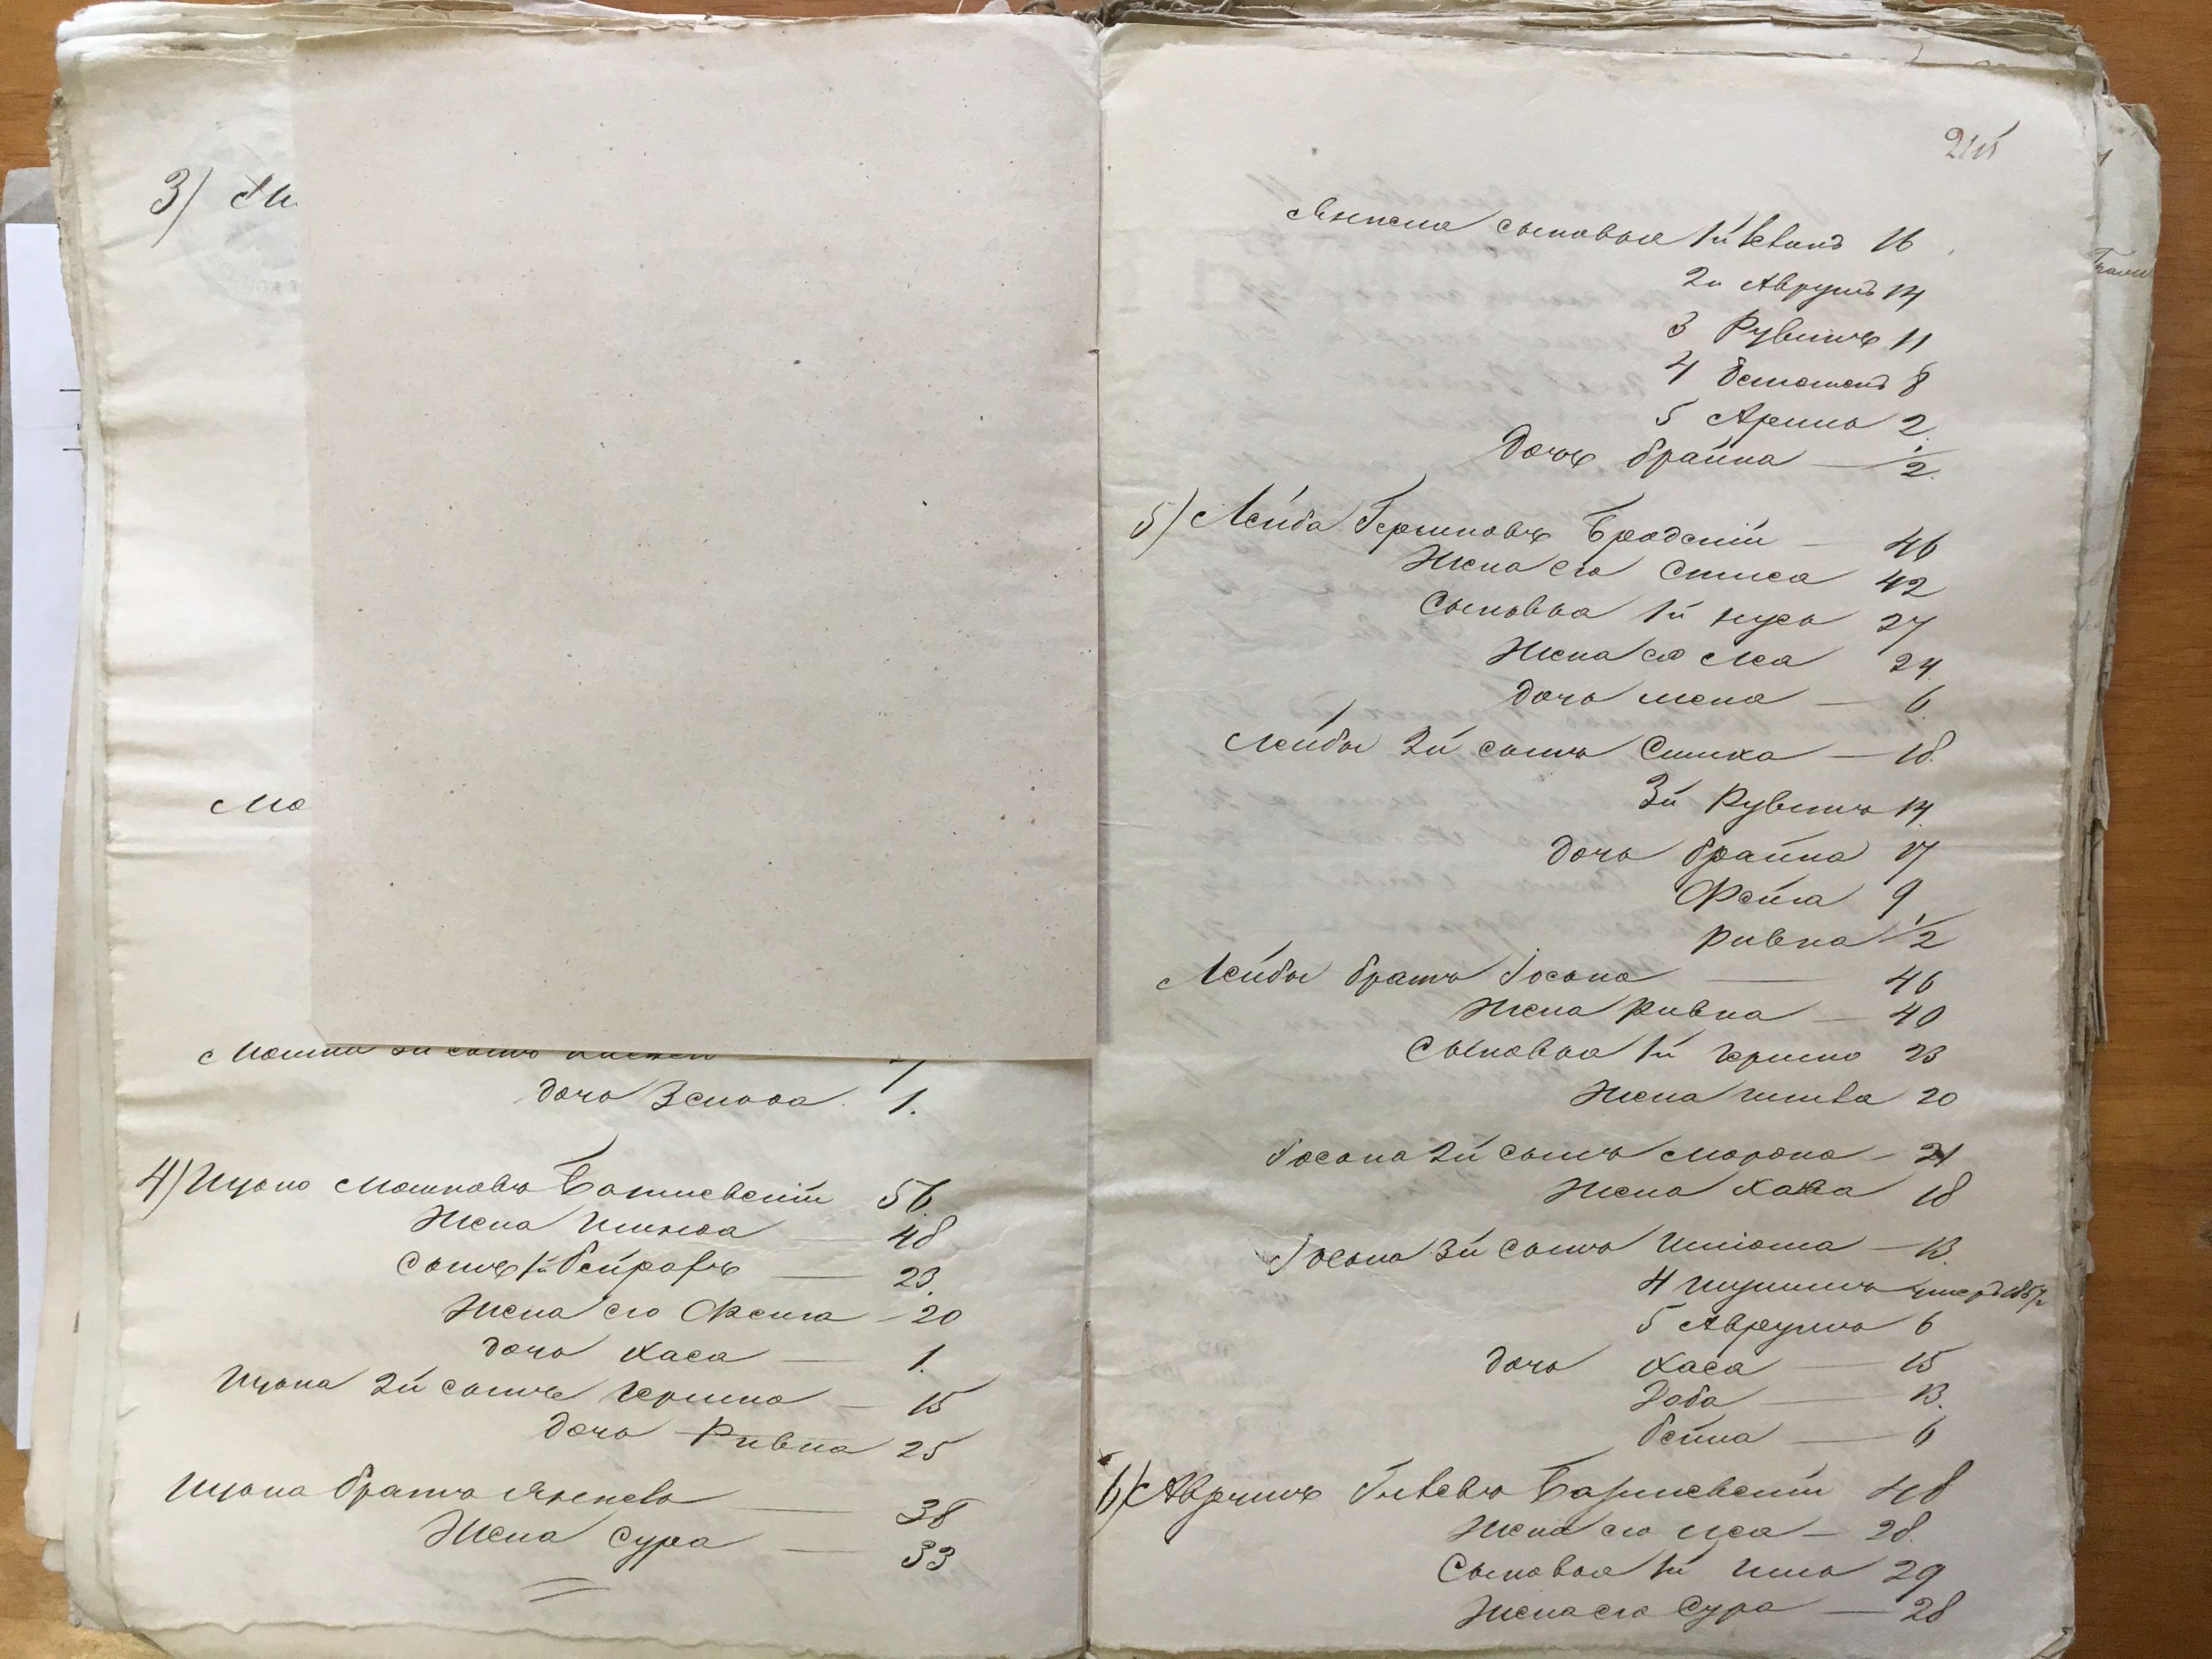 3) Ми
Мо
Мошки 3й сынъ
7
дочь Зельда 1.
4) Ицько Мошковъ Балтиевскій 56.
Жена 48
Сынъ 1й Бейрахъ 23.
Жена его Фейга 20
дочь Хася 1.
Ицька 2й сынъ Гершко 15
дочь Ривка 25
Ицька братъ Янкель 38
Жена Сура 33
215
Янкеля сыновья 1й 16
2й Аврумъ 14
3 Рувинъ 11
4 8
5 Арыш 2
дочь брайна 1/2.
5) Лейба Гершковъ Бродскій 46
Жена его 42
Сыновья 1й нусь 27
Жена его Леа 24.
дочь 6
Лейбы 2й сынъ Симха 18.
3й Рувинъ 14.
дочь брайна 17
Фейга 9
Ривка 1/2
Лейбы братъ Іосько 46
Жена Ривка 40
Сыновья 1й Гершко 23
Жена 20
Іоська 2й сынъ Мордко 21
Жена Хава 18
Іоська 3й сынъ 13.
4 умеръ 1857
5 Аврумъ 6
дочь Хася 15
Доба 13.
бейла 6
6) Аврумъ 48
Жена его 28.
Сыновья 1й 29
Жена его Сура 28